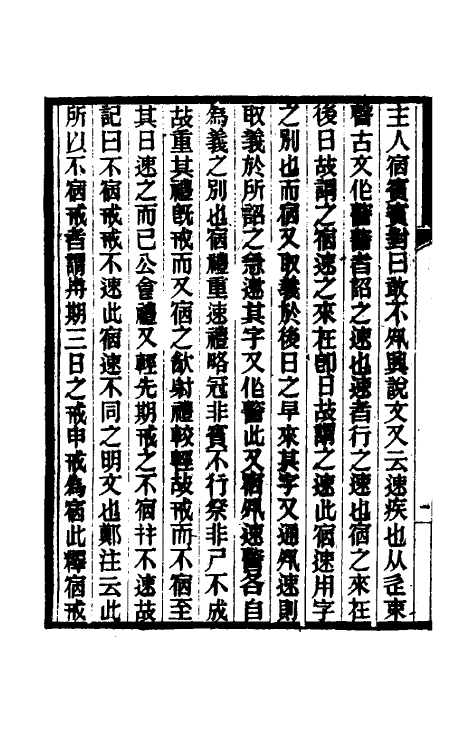 主人宿賓賓對曰敢不夙興說文又云速疾也从辵束
警古文作警警者詔之速也速者行之速也宿之來在
後日故謂之宿速之來在卽日故謂之速此宿速用字
之別也而宿又取義於後日之早來其字又通夙速則
取義於所詔之急遽其字又作警此又宿夙速警各自
為義之別也宿禮重速禮略冠非賓不行祭非尸不成
故重其禮旣戒而又宿之飮射禮較輕故戒而不宿至
其日速之而已公會禮又輕先期戒之不宿幷不速故
記曰不宿戒戒不速此宿速不同之明文也鄭注云此
所以不宿戒者謂前期三日之戒申戒為宿此釋宿戒
一